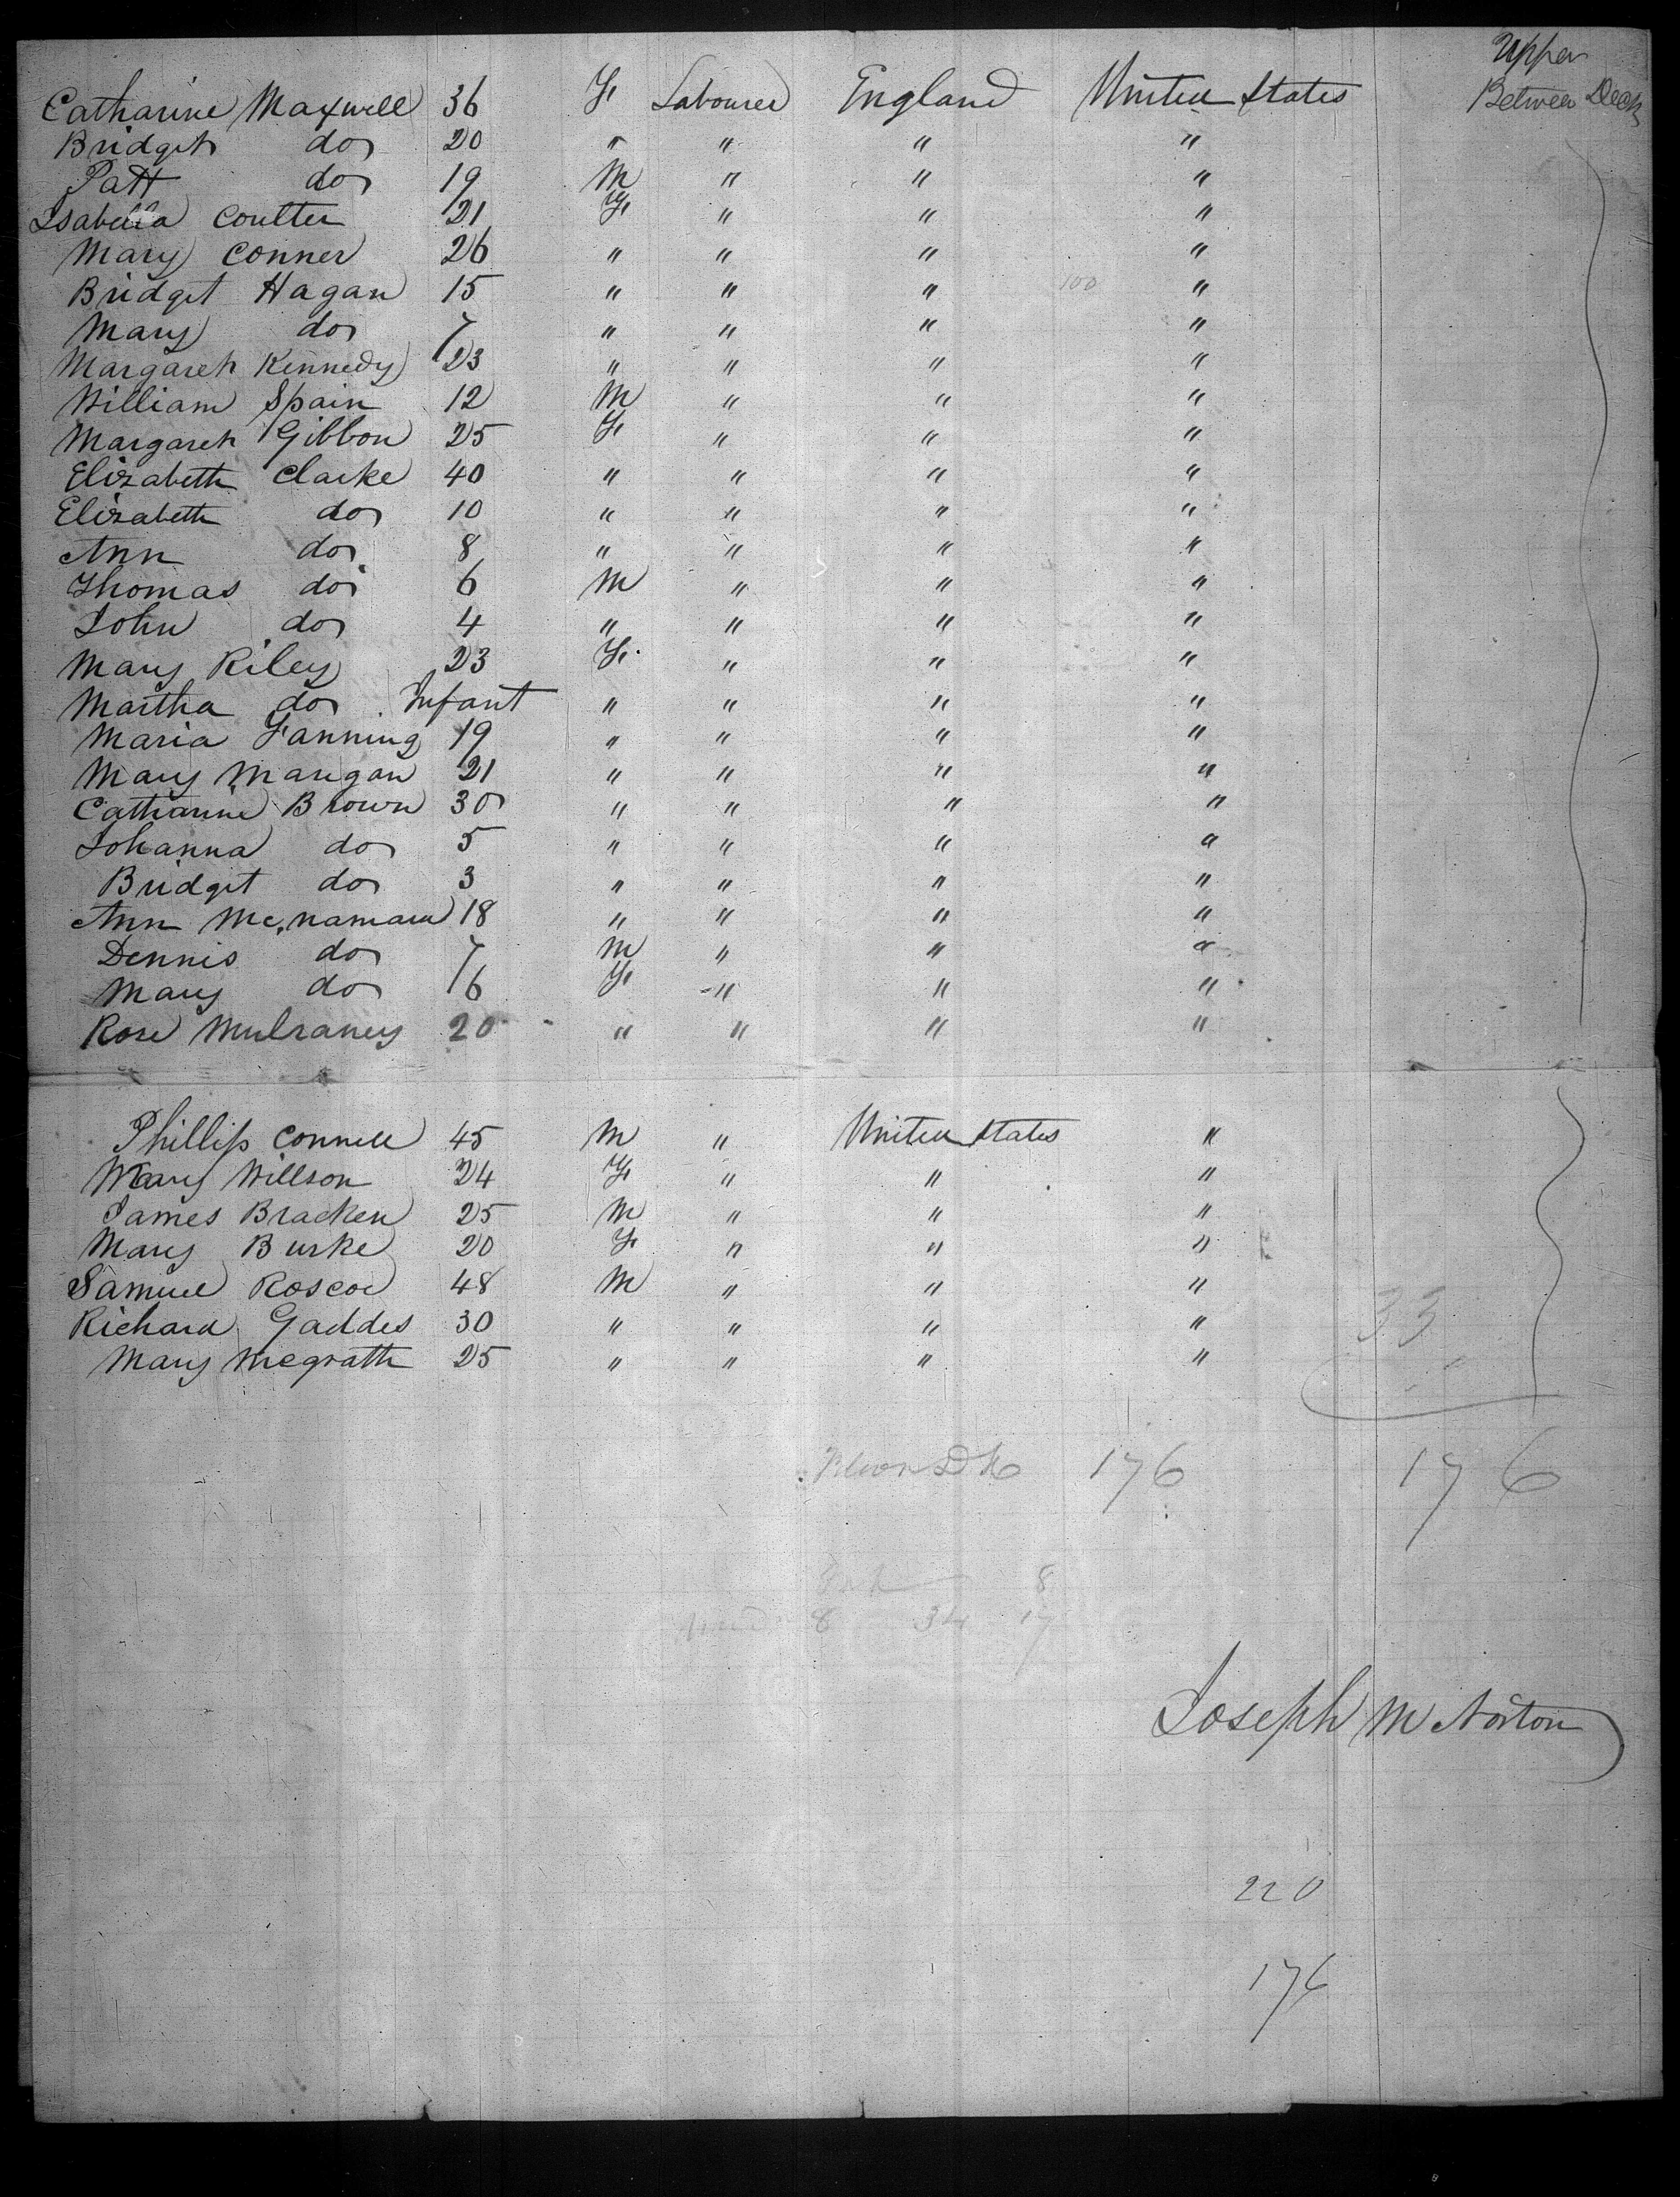 Upper
Catharine Maxwell 36 F. Labourer England United States Between Decks
Bridget do 20 " " " "
Patt do 19 M " " "
Isabella Coulter 21 F. " " "
Mary Conner 26 " " " "
Bridget Hagan 15 " " " 100 "
Mary do 7 " " " "
Margaret Kennedy 23 " " " "
William Spain 12 M " " "
Margaret Gibbon 25 F. " " "
Elizabeth Clarke 40 " " " "
Elizabeth do 10 " " " "
Ann do 8 " " " "
Thomas do 6 M " " "
John do 4 " " " "
Mary Riley 23 F. " " "
Martha do Infant " " " "
Maria Fanning 19 " " " "
Mary Mangan 21 " " " "
Catharine Brown 30 " " " "
Johanna do 5 " " " "
Bridget do 3 " " " "
Ann Mc,namara 18 " " " "
Dennis do 7 M " " "
Mary do 6 F. " " "
Rose Mulraney 20 " " " "
Phillip Connell 45 M " United States "
Mary Willson 24 F. " " "
James Bracken 25 M " " "
Mary Burke 20 F. " " "
Samuel Roscoe 48 M " " "
Richard Gaddes 30 " " " " 33
Mary Mcgrath 25 " " " "
176 176
8
8 34 17
Joseph M Norton
220
176